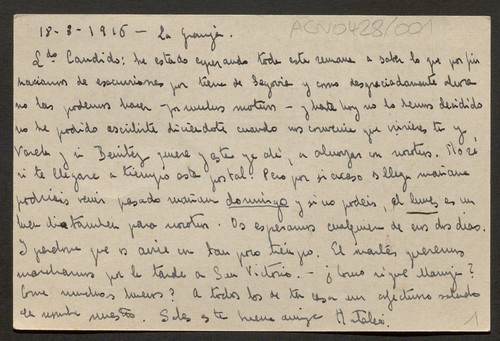 18-8-1916 — La Granja.
ACN0428/001
Qdo Candido: he estado esperando toda esta semana a saber lo que por fin
haciamos de excursiones por tierra de Segovia y como desgraciadamente ahora
no las podemos hacer - por muchos motivos - y hasta hoy no lo hemos decidido
no he podido escribirte diciendote cuando nos convenia que vinieses tu y
Varela y si Benitez quiere y está ya ahí, a almorzar con nosotros. No sé
si te llegara a tiempo esta postal. Pero por si acaso os llega mañana
podriais venir pasado mañana domingo y si no podeis, el lunes es un
buen dia tambien para nosotros. Os esperamos cualquiera de esos dos dias.
Y perdona que os avise con tan poco tiempo. El martes queremos
marcharnos por la tarde a San Victorio. - ¿Como sigue
Come muchos huevos? A todos los de tu casa un afectuoso saludo
de nuestro. Sabes es tu buena amiga
1